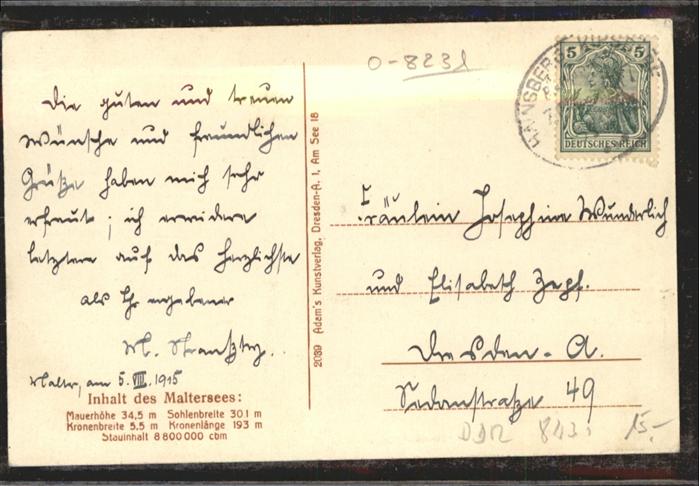 Die guten und treuen
Wünsche und freundlichen
Grüße haben mich sehr
erfreut; ich erwidere
letztere auf das herzlichste
als Ihr ergebener
M.
Malter, am 5. VIII. 1915
Inhalt des Maltersees:
Mauerhöhe 34,5 m Sohlenbreite 30.1 m
Kronenbreite 5,5 m Kronenlänge 193 m
Stauinhalt 8 800 000 cbm
2039 Adam's Kunstverlag, Dresden-A. 1, Am See 18
0-8231
HAINSBERG
5 5
DEUTSCHES REICH
Fräulein Josephine Wunderlich
und Elisabeth Zepf.
Dresden-A.
Sedanstraße 49
DDR 8231 15,-